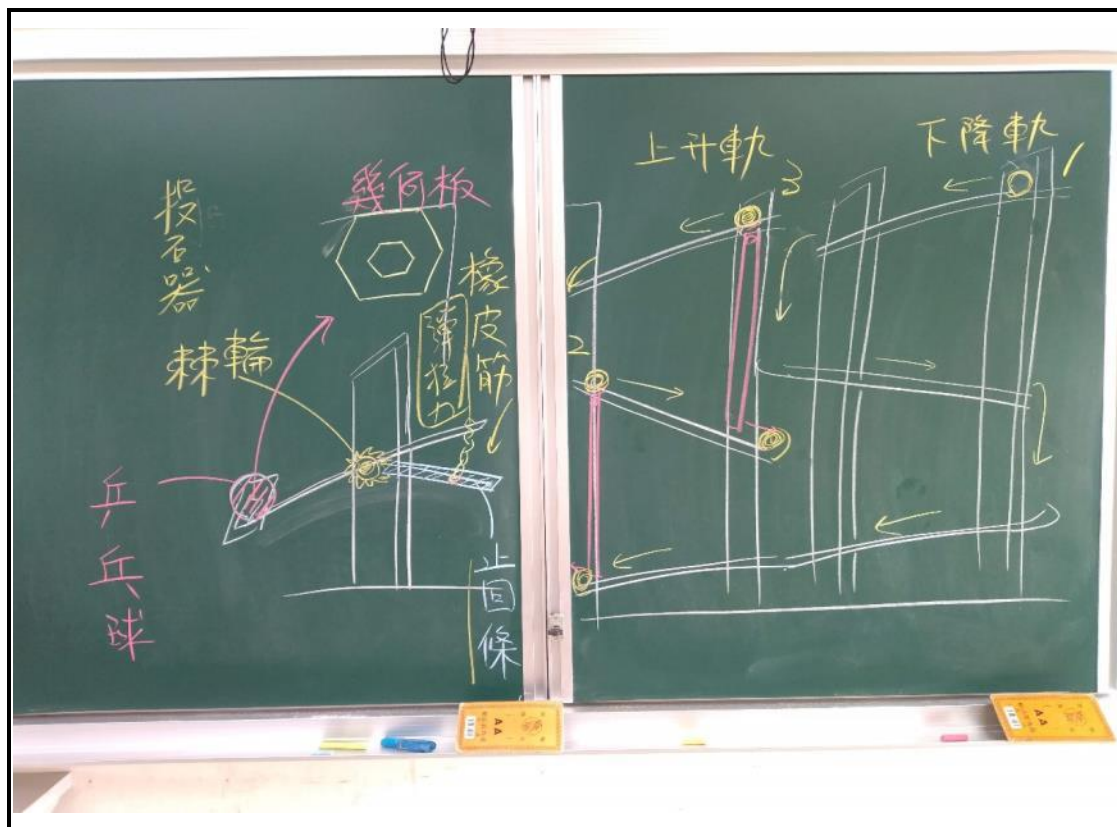 投石器
幾何板
橡皮筋
彈拉力
棘輪
乒乓球
止回條
上升軌
3
下降軌
1
2
AA
AA